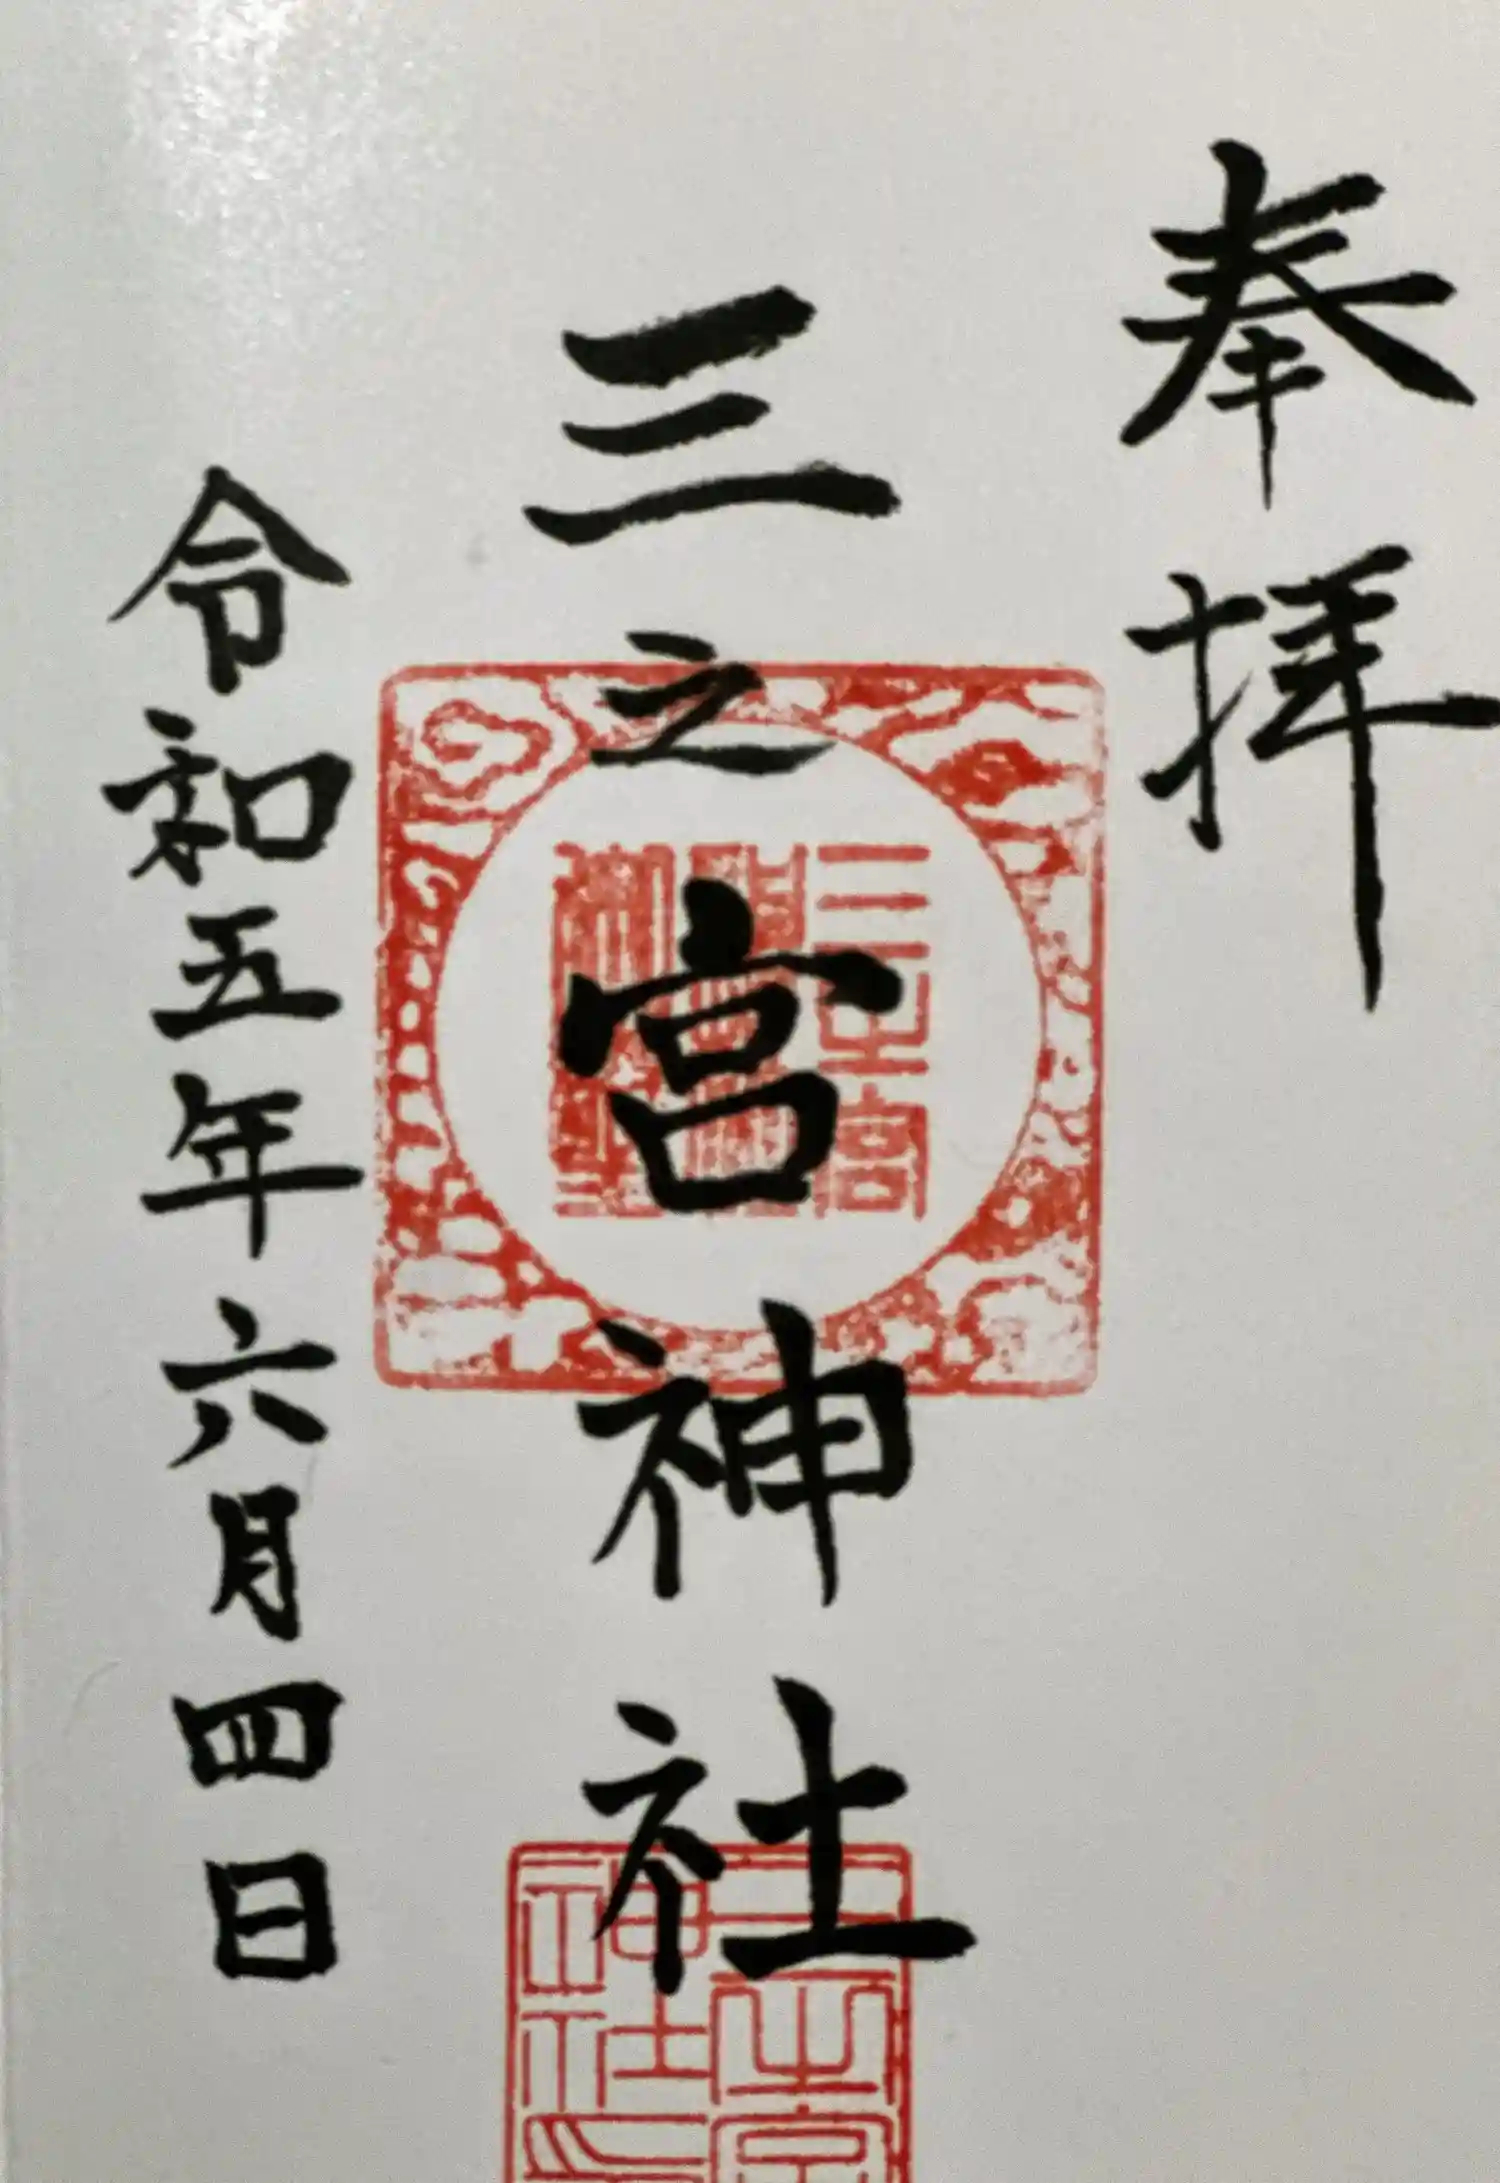 奉拝
三之宮神社
令和五年六月四日
三之宮
三之宮
神社